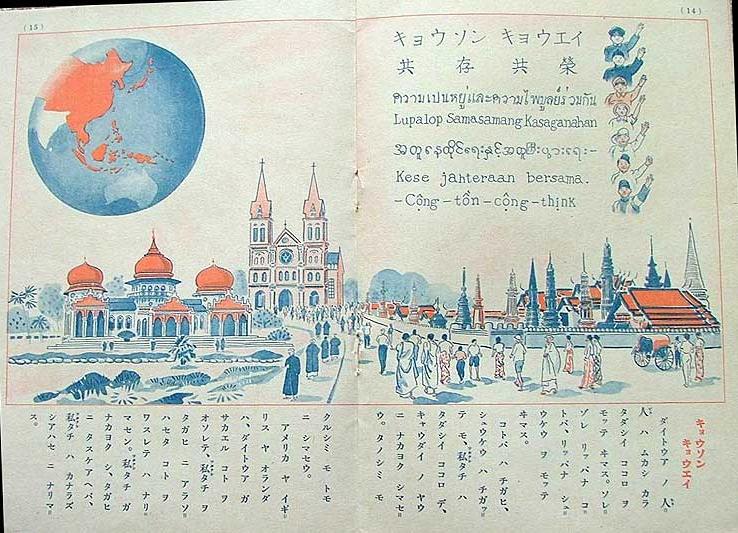 (14)
キョウソン キョウエイ
共 存 共 榮
ความเปนหยู่และความไพบูลย์ร่วมกัน
Lupalop Samasamang Kasaganahan
အတူနေထိုင်ရေးနှင့်အတူကြီးပွားရေး-
Kese jahteraan bersama.
-Cộng-tồn-cộng-thịnk
キョウソン
キョウエイ
ダイトウア ノ 人
人ハ ムカシ カラ
タダシイ ココロ ヲ
モッテ キマス。ソレ
ゾレ リッパナ コ
トバ、リッパナ シュ
ウケウ ヲ モッテ
ヰマス。
コトバ ハ チガヒ、
シュウケウ ハ チガッ
テ モ、私タチ ハ
タダシイ ココロ デ、
キャウダイ ヤウ
ニ ナカヨク シマセ
ウ。タノシミ モ
(15)
クルシミ モ トモ
ニ シマセウ。
アメリカ ヤ イギ
リス ヤ オランダ
ハ、ダイトウア ガ
サカエル コト ヲ
オソレテ、私タチ ヲ
タガヒ ニ アラソ
ハセタ コト ヲ
ワスレテ ハ ナリ
マセン。私タチ ガ
ナカヨク シ、タガヒ
ニ タスケアヘバ、
私タチ ハ カナラズ
シアハセ ニ ナリマ
ス。